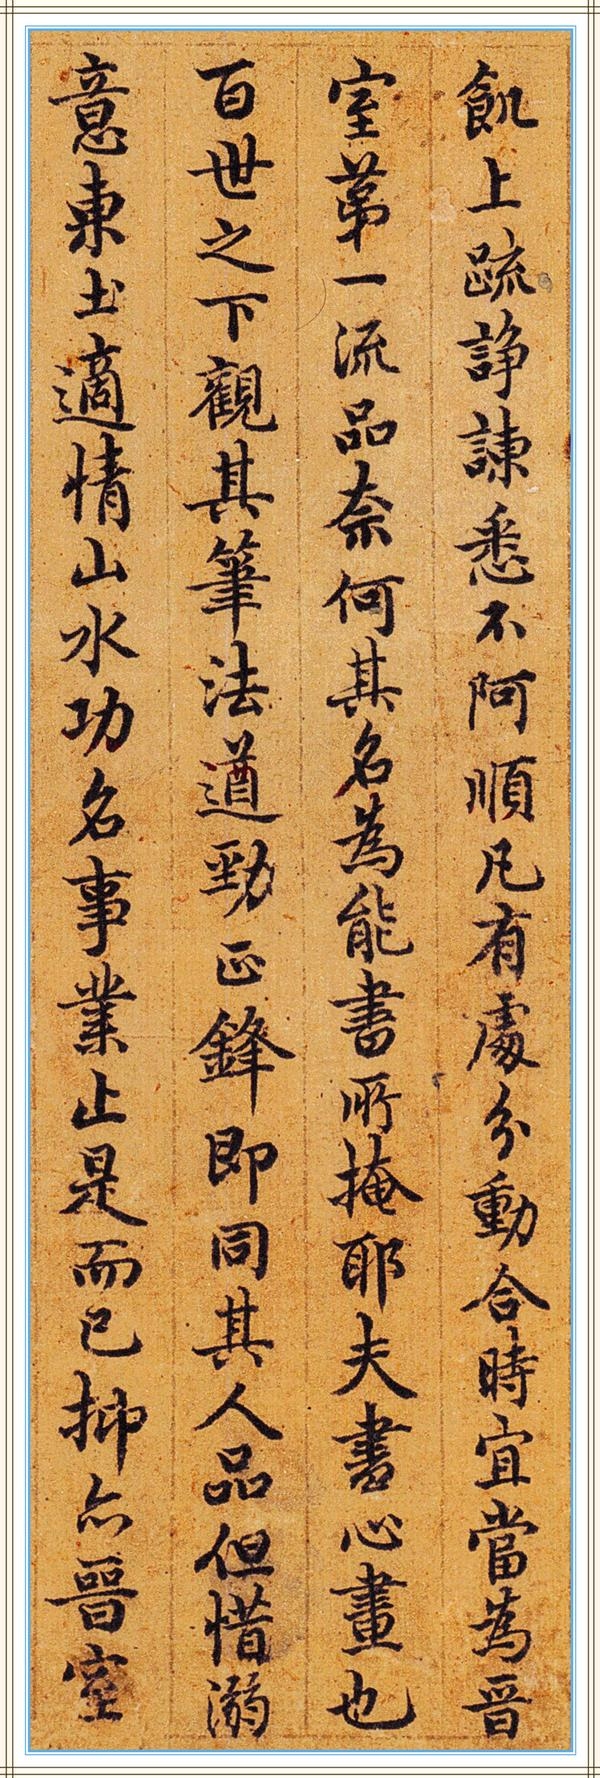 飢上疏諍諫悉不阿順凡有處分動合時宜當為晉
室苐一流品奈何其名為能書所掩耶夫書心畫也
百世之下觀其筆法遒勁正鋒即同其人品但惜溺
意東土適情山水功名事業止是而已抑亦晉室